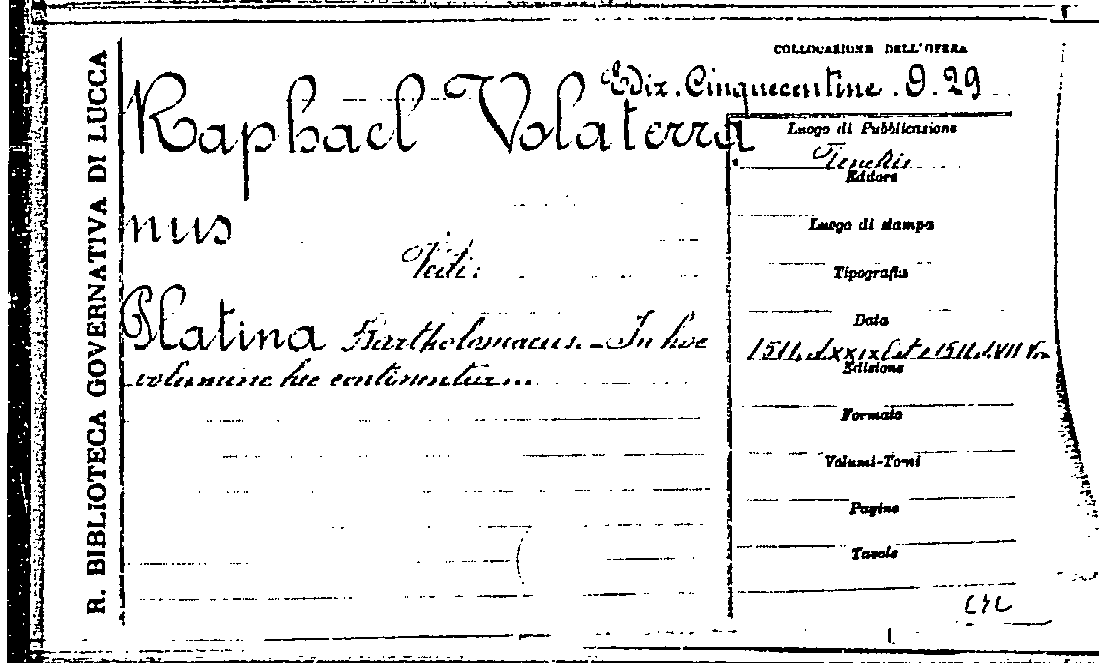 R. BIBLIOTECA GOVERNATIVA DI LUCCA
COLLOCAZIONE DELL'OPERA
Ediz. Cinquecentine. 9. 29
Raphael Volaterra
nus
Vedi:
Platina Bartholomaeus. - In hoc
volumine hec continentur...
Luogo di Pubblicazione
Venetiis
Editore
Luogo di stampa
Tipografia
Data
Edizione
Formato
Volumi-Tomi
Pagine
Tavole